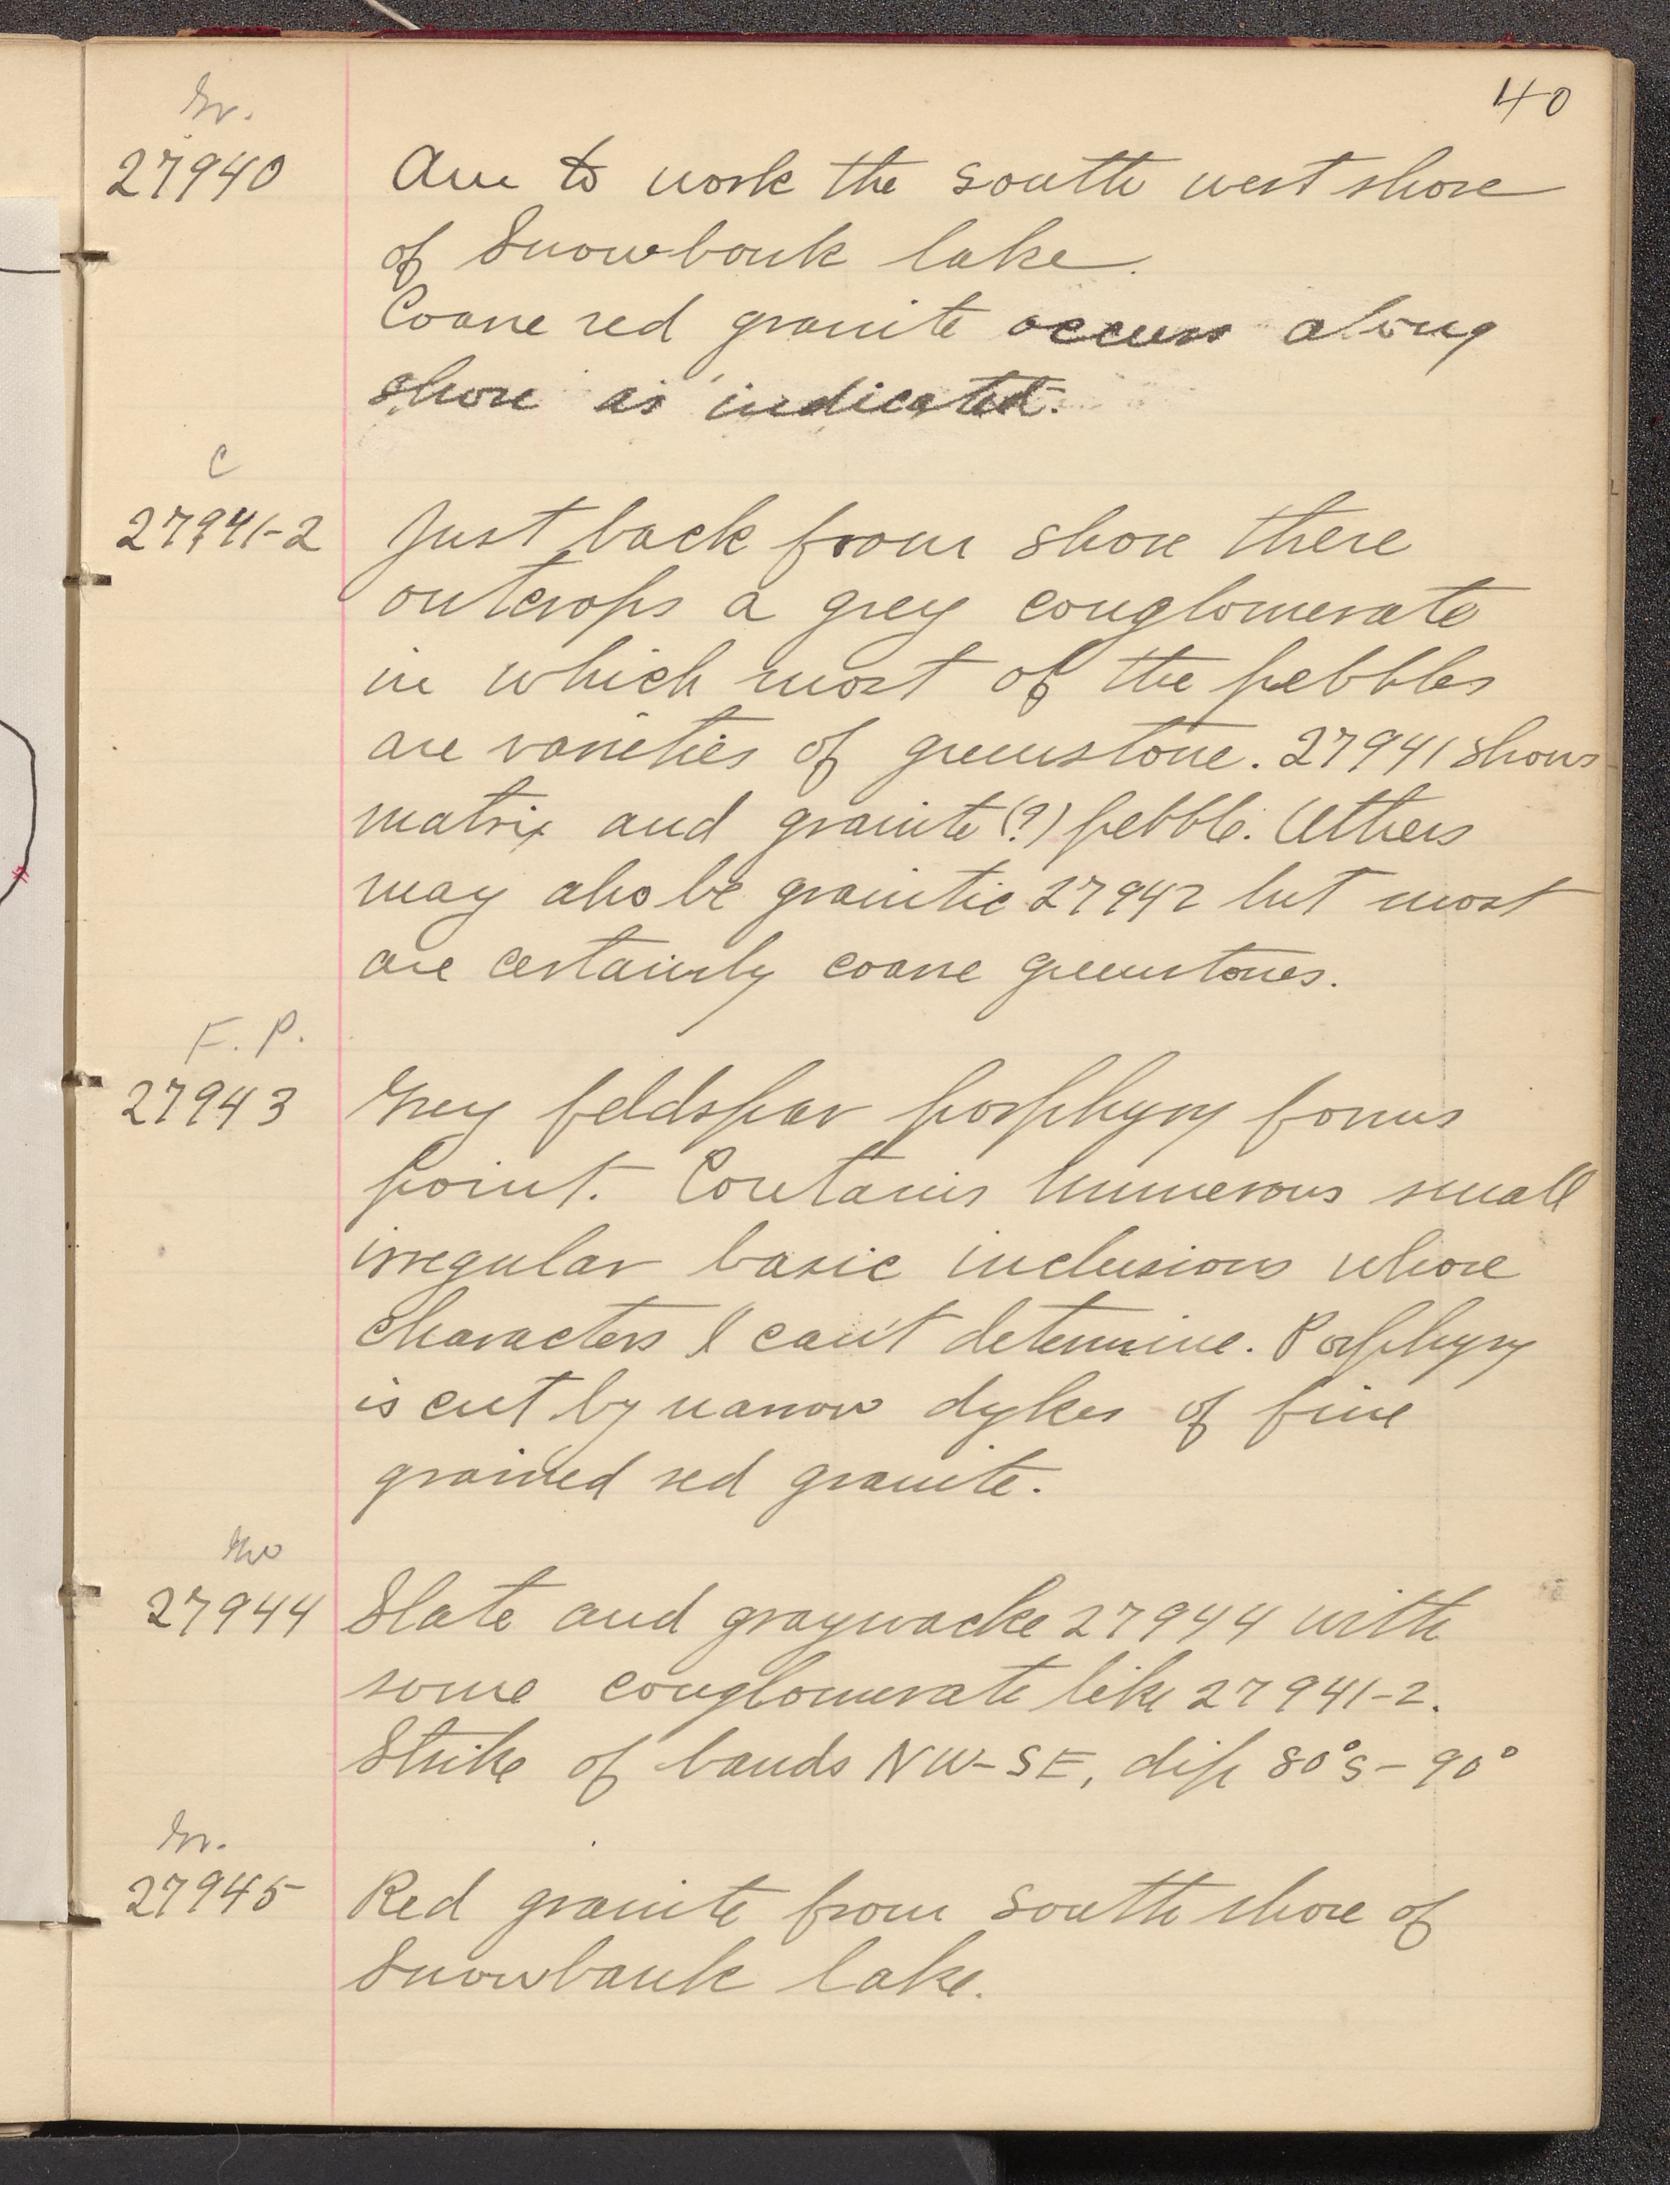 40
Gr.
27940 Am to work the south west shore
of Snowbank lake.
Coarse red granite occurs along
shore as indicated.
C
27941-2 Just back from shore there
outcrops a grey conglomerate
in which most of the pebbles
are varieties of greenstone. 27941 shows
matrix and granite (?) pebble. Others
may also be granitic 27942 but most
are certainly coarse greenstones.
F. P.
27943 Grey feldspar porphyry forms
point. Contains numerous small
irregular basic inclusions whose
characters I can't determine. Porphyry
is cut by narrow dykes of fine
grained red granite.
Gw
27944 Slate and graywacke 27944 with
some conglomerate like 27941-2.
Strike of bands NW-SE, dip 80°S-90°
Gr.
27945 Red granite from south shore of
Snowbank lake.